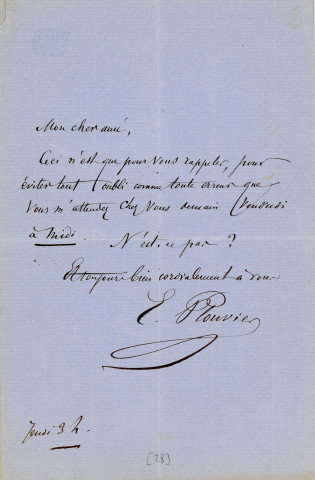 Mon cher ami,
Ceci n'est que pour vous rappeler, pour
éviter tout oubli comme toute erreur que
vous m'attendez chez vous demain (vendredi
à Midi. N'est-ce pas ?
Et toujours bien cordialement à vous
E. Plouvier
Jeudi 3 h.
[28]